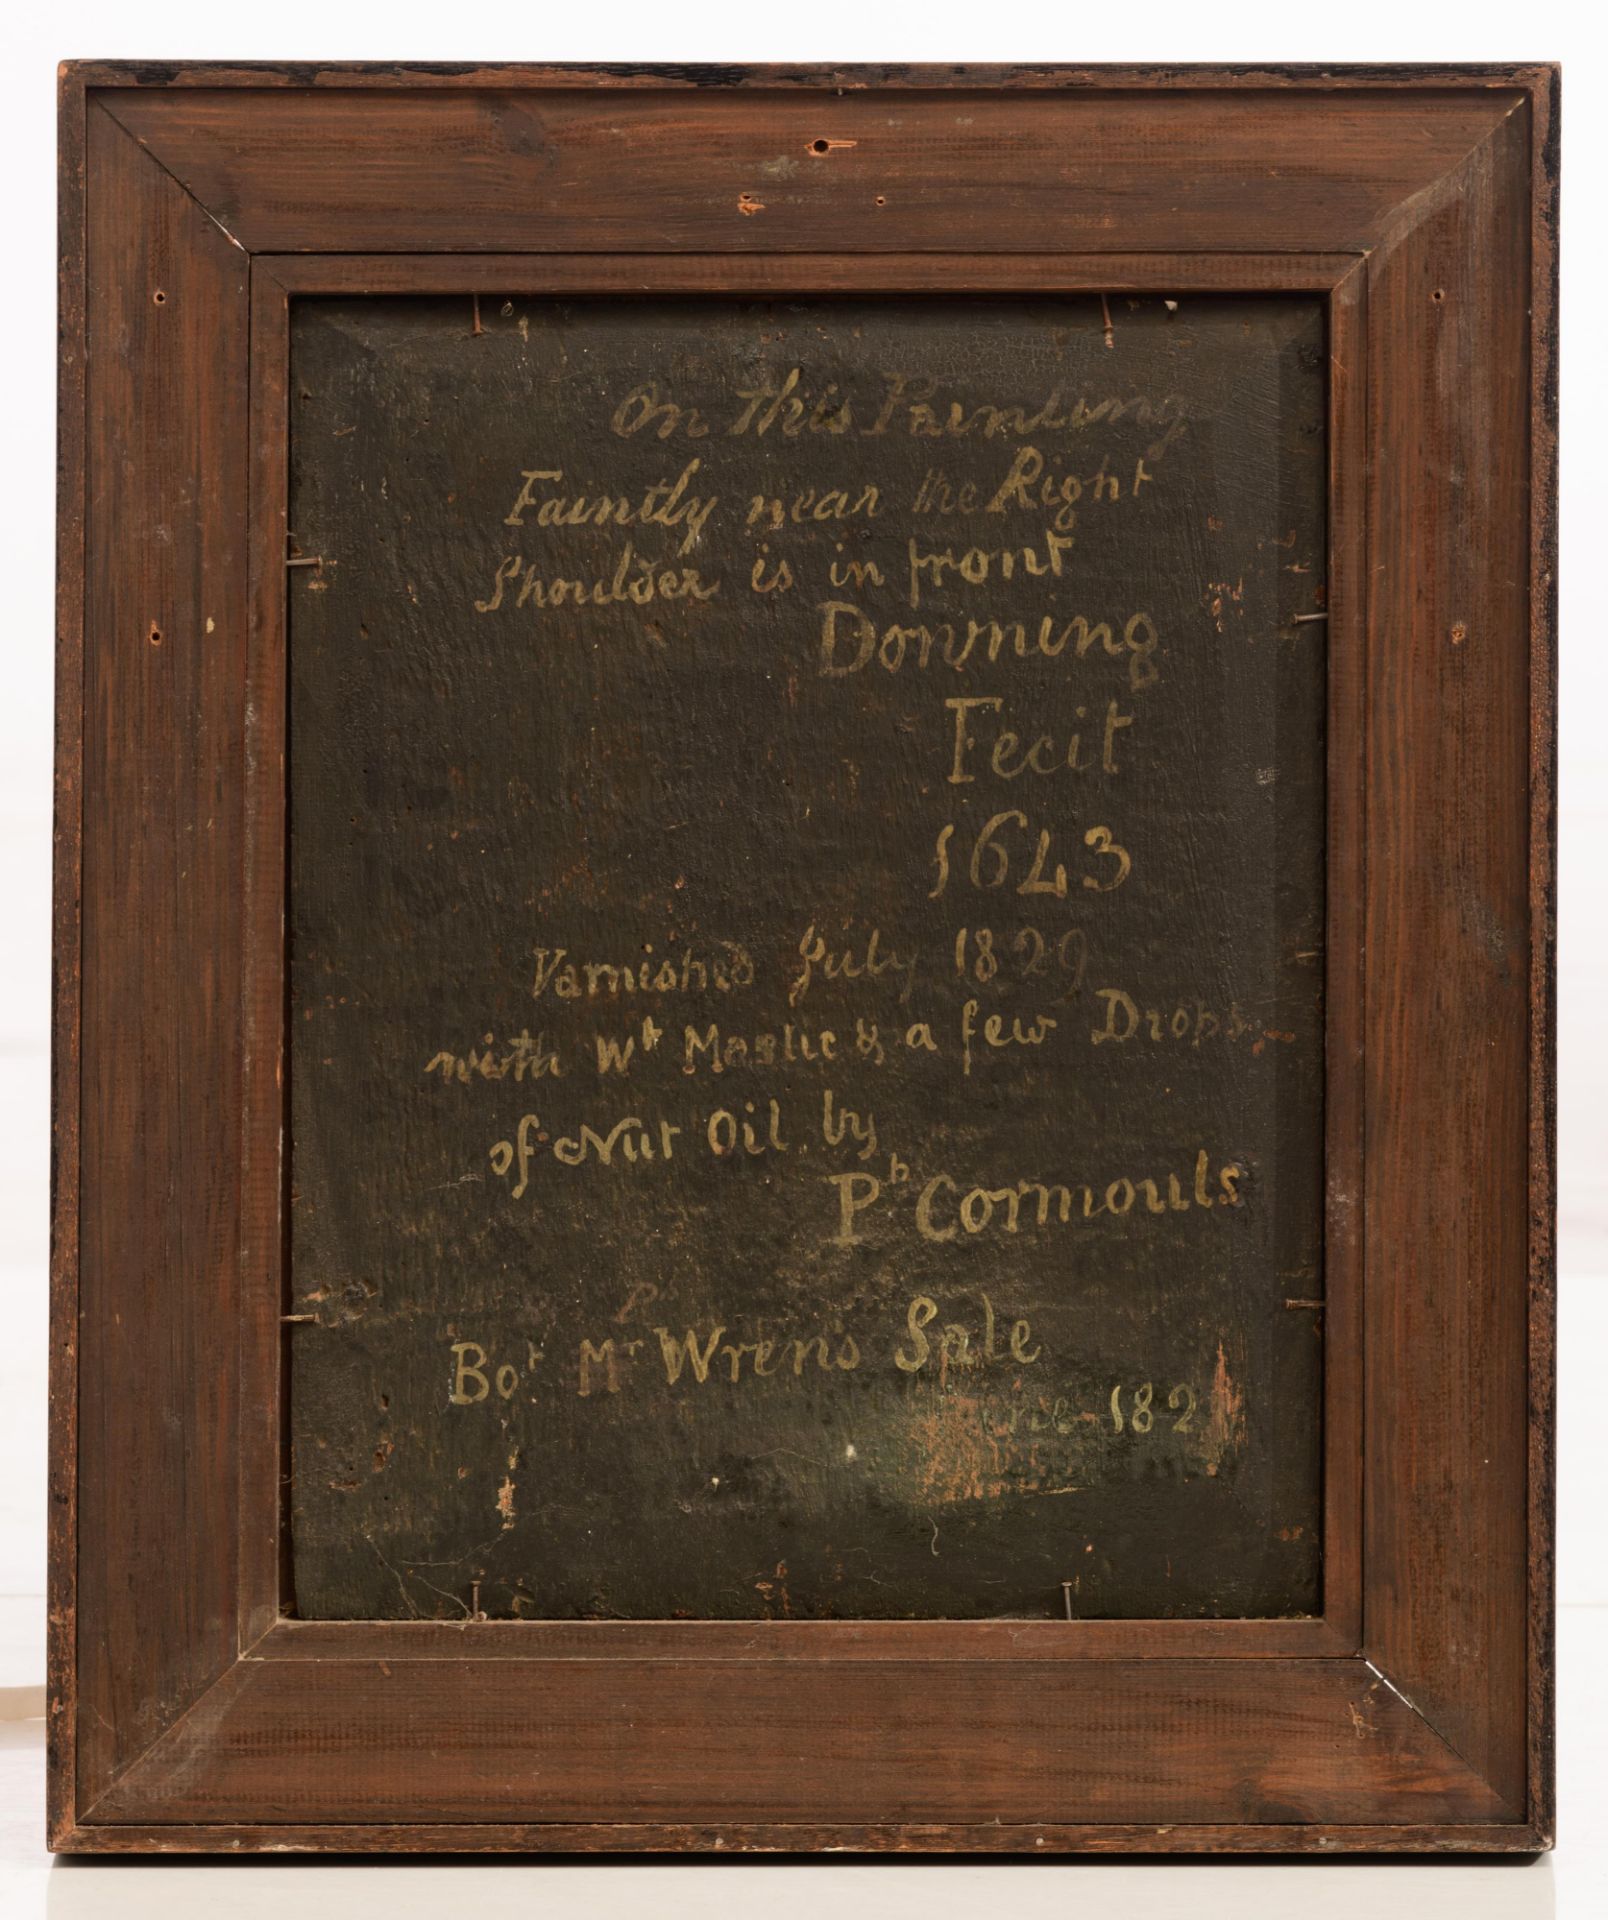 On this Painting
Faintly near the Right
Shoulder is in front
Downing
Fecit
1643
Varnished July 1829
with Wt Mastic & a few Drops
of Nut Oil by
Ph Cormouls
Bot Mr Wrens Sale
182